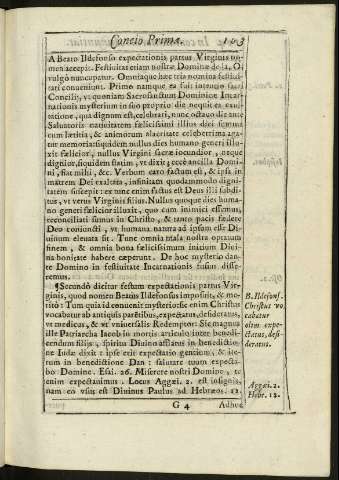 Concio Prima. 103
A Beato Ildefonso expectationis partus Virginis no-
men accepit. Festiuitas etiam nostræ Dominæ de la, O.
vulgò nuncupatur. Omniaque hæc tria nomina festiui-
tati conueniunt. Primo namque ea fuit intentio sacri
Concilij, vt quoniam Sacrosanctum Dominicæ Incar-
nationis mysterium in suo proprio die nequit ea exul-
tatione, qua dignum est, celebrari, nunc octauo die ante
Saluatoris natiuitatem fælicissimi illius diei summa
cum lætitia, & animorum alacritate celeberrima aga-
tur memoria: siquidem nullus dies humano generi illu-
xit fælicior, nullus Virgini sacræ iocundior, neque
dignior, siquidem statim, vt dixit; ecce ancilla Domi-
ni, fiat mihi, &c. Verbum caro factum est, & ipsa in
matrem Dei exaltata, infinitam quodammodo digni-
tatem suscepit: ex tunc enim factus est Deus illi subdi-
tus, vt verus Virginis filius. Nullus quoque dies huma-
no generi fælicior illuxit, quo cum inimici essemus,
reconciliati sumus in Christo, & tanto pacis fædere
Deo coniuncti, vt humana natura ad ipsum esse Di-
uinum eleuata sit. Tunc omnia mala nostra optatum
finem, & omnia bona felicissimum initium Diui-
na bonitate habere cæperunt. De hoc mysterio dan-
te Domino in festiuitate Incarnationis fusius disse-
remus.
¶Secundò dicitur festum expectationis partus Vir-
ginis, quod nomen Beatus Ildefonsus imposuit, & me-
ritò: Tum quia id conuenit mysterio: sic enim Christus
vocabatur ab antiquis partibus, expectatus, desideratus,
vt medicus, & vt vniuersalis Redemptor: Sic magnus
ille Patriarcha Iacob in mortis articulo inter benedi-
cendum filijs, spiritu Diuino afflatus in benedictio-
ne Iudæ dixit: ipse erit expectatio gentium, & ite-
rum in benedictione Dan: salutare tuum expecta-
bo Domine. Esai. 26. Miserere nostri Domine, te
enim expectauimus. Locus Aggæi. 2. est insignis,
nam eo vsus est Diuinus Paulus ad Hebræos. 12.
G 4 Adhuc
B. Ildefons.
Christus vo
cabatur
olim expe-
ctatus, desi-
deratus.
Aggæi. 2.
Hebr. 12.